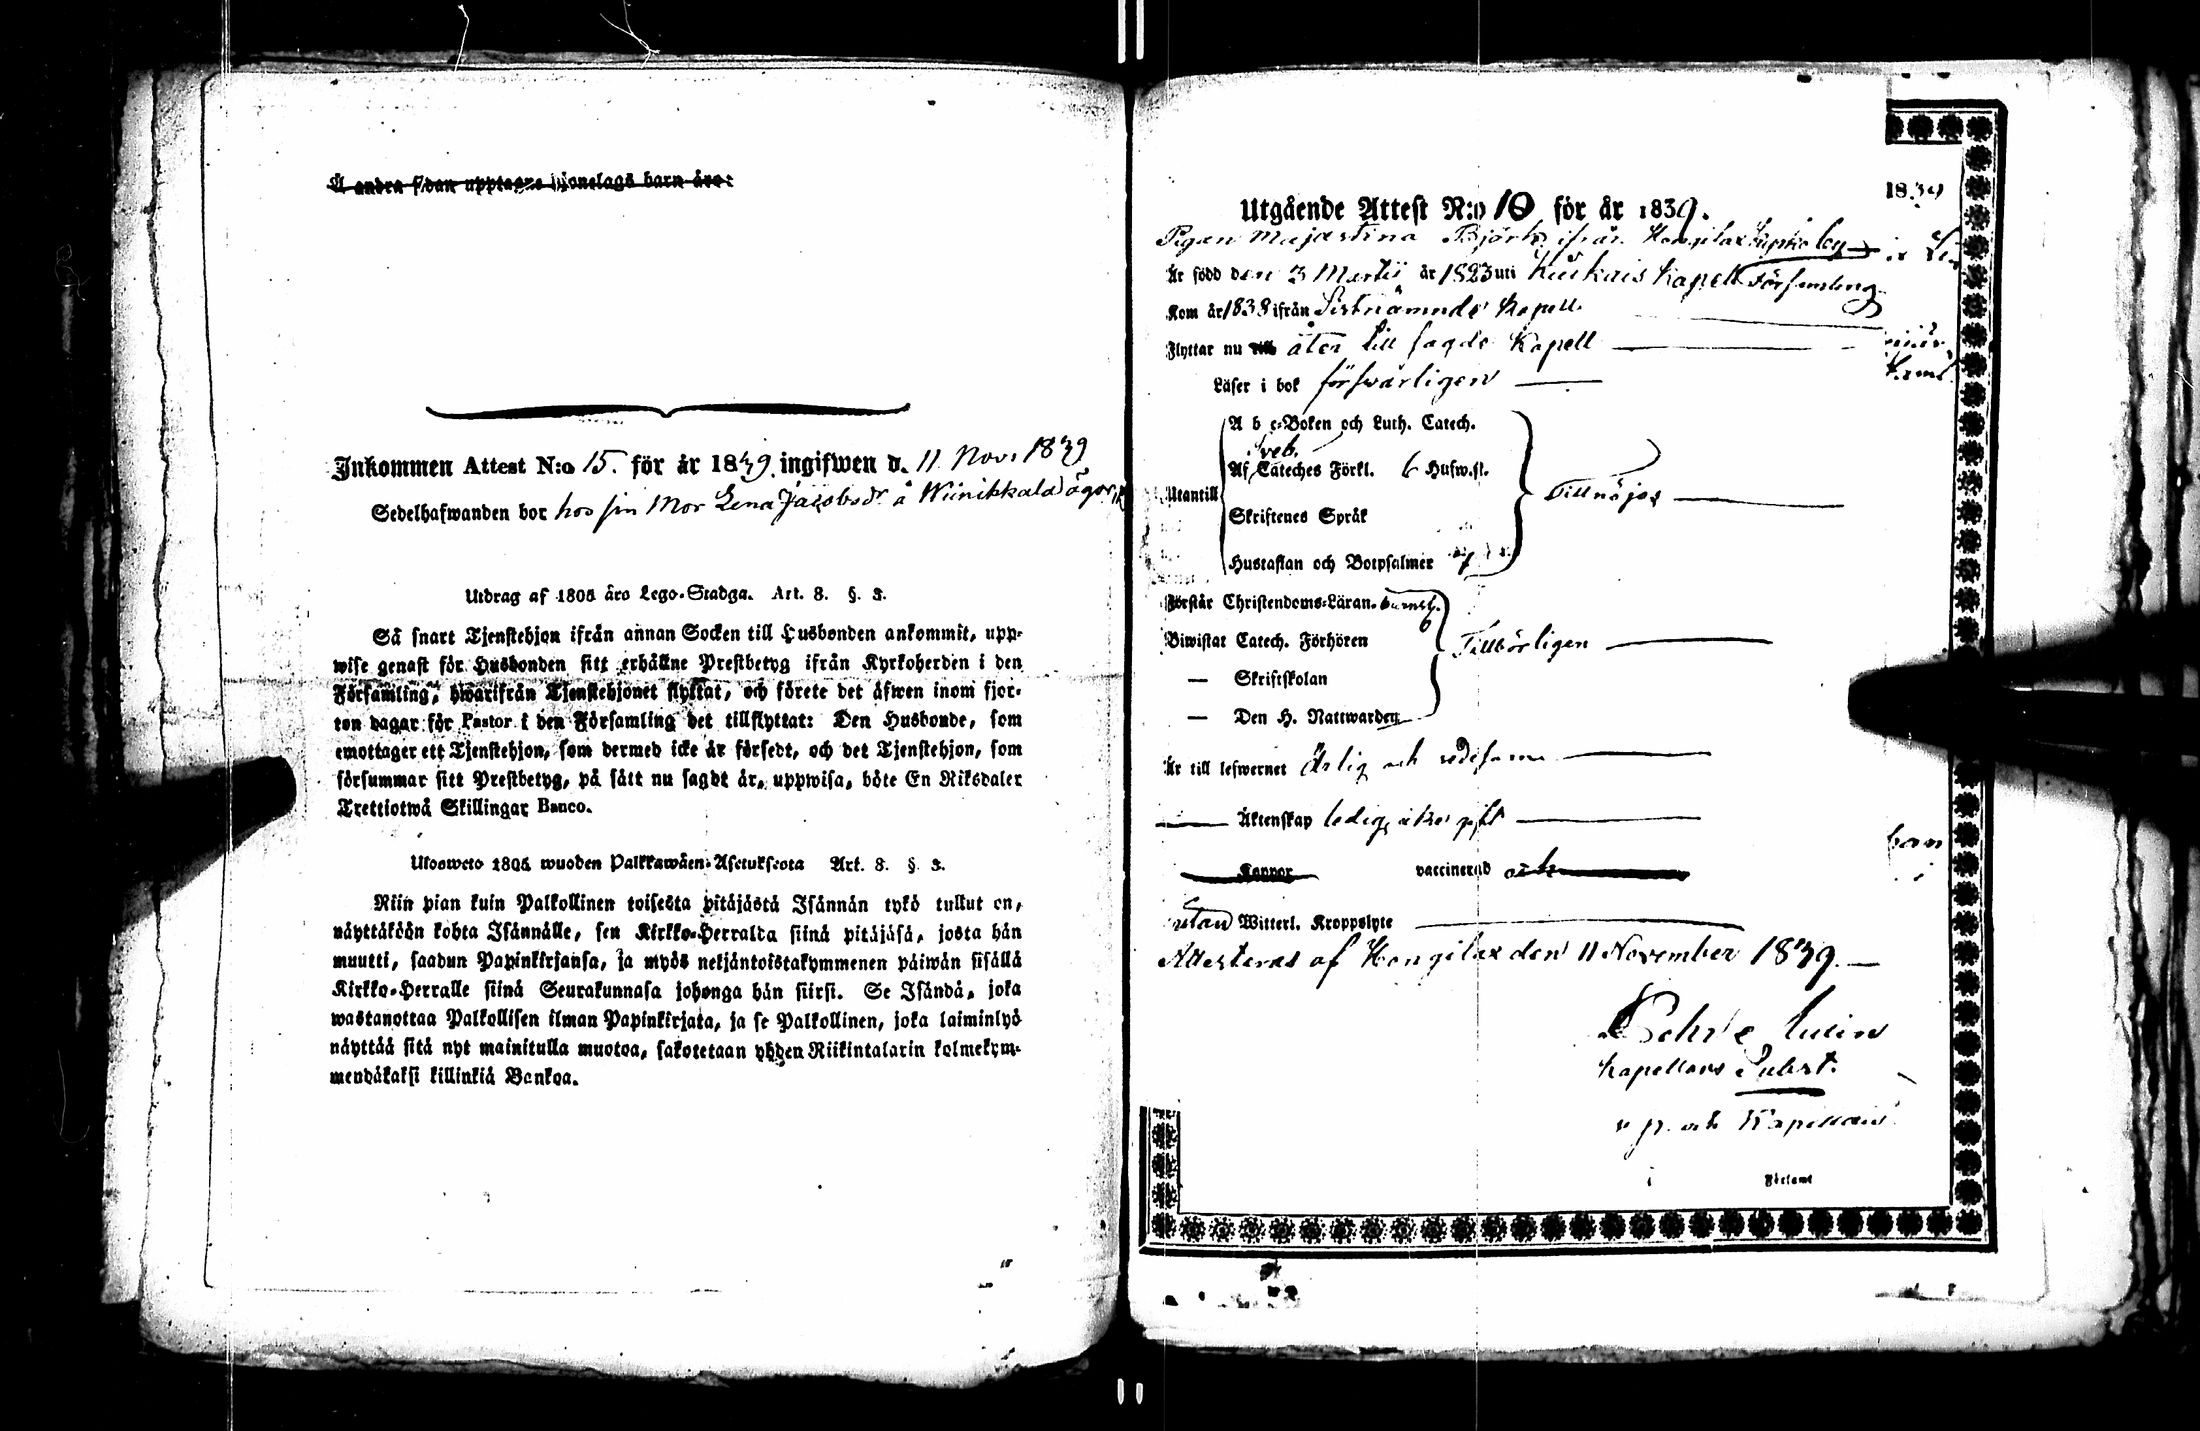 Å andra sidan upptagne Hjonelags barn äro:
Inkommen Attest N:o 15. för år 1839. ingifwen d. 11 Nov. 1839
Sedelhafwanden bor hos sin Mor Lena Jacobsdr å Wiinikkala ägor
Utdrag af 1805 års Lego-Stadga. Art. 8. §. 3.
Så snart Tjenstehjon ifrån annan Socken till Husbonden ankommit, upp-
wise genast för Husbonden sitt erhållne Prestbetyg ifrån Kyrkoherden i den
Församling, hwarifrån Tjenstehjonet flyttat, och förete det äfwen inom fjor-
ton dagar för Pastor i den Församling det tillflyttat: Den Husbonde, som
emottager ett Tjenstehjon, som dermed icke är försedt, och det Tjenstehjon, som
försummar sitt Prestbetyg, på sätt nu sagdt är, uppwisa, böte En Riksdaler
Trettiotwå Skillingar Banco.
Ulosweto 1805 wuoden Palkkawäen-Asetuksesta Art. 8. §. 3.
Niin pian kuin Palkollinen toisesta pitäjästä Isännän tykö tullut on,
näyttäkään kohta Isännälle, sen Kirkko-Herralta siinä pitäjäsä, josta hän
muutti, saadun Papinkirjansa, ja myös neljäntoistakymmenen päiwän sisällä
Kirkko-Herralle siinä Seurakunnasa johonga hän siirsi. Se Isändä, joka
wastanottaa Palkollisen ilman Papinkirjata, ja se Palkollinen, joka laiminlyö
näyttää sitä nyt mainitulla muotoa, sakotetaan yhden Riikintalarin kolmekym-
mendäkaksi killinkiä Bankoa.
1839
Utgående Attest N:o 10 för år 1839.
Pigan Majastina Björk ifrån Hongilax by
Är född den 3 Martii år 1823 uti Kuskois Kapell Församling
Kom år 1838 ifrån Sistnämnde Kapell
Flyttar nu till åter till sagde Kapell
Läser i bok försvarligen
A b c-Boken och Luth. Catech.
Sveb.
Af Cateches Förkl. 6 Husw.st.
Utantill
Skriftenes Språk
Tillnöjes
Hustaflan och Botpsalmer
Förstår Christendoms-Läran. barnsl.
Biwistat Catech. Förhören
Tillbörligen
— Skriftskolan
— Den H. Nattwarden
Är till lefwernet Ärlig och redesam
Äktenskap ledig, icke gift
Koppor vaccinerad och
utan Witterl. Kroppslyte
barn
Attesteras af Hongilax den 11 November 1839.
Kapellans Subst.
v. p. och Kapellan
i Församl